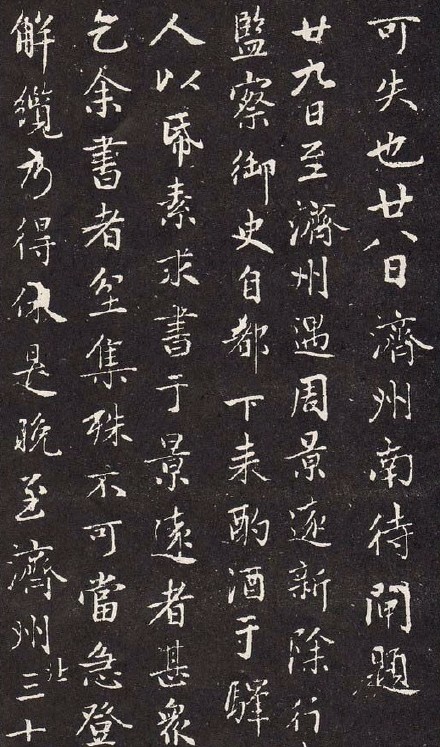 可失也廿八日濟州南待閘題
廿九日至濟州遇周景遠新除行
監察御史自都下来酌酒于驛
人以𢁥素求書于景遠者甚衆
乞余書者坌集殊不可當急登
解纜乃得休是晚至濟州北三十